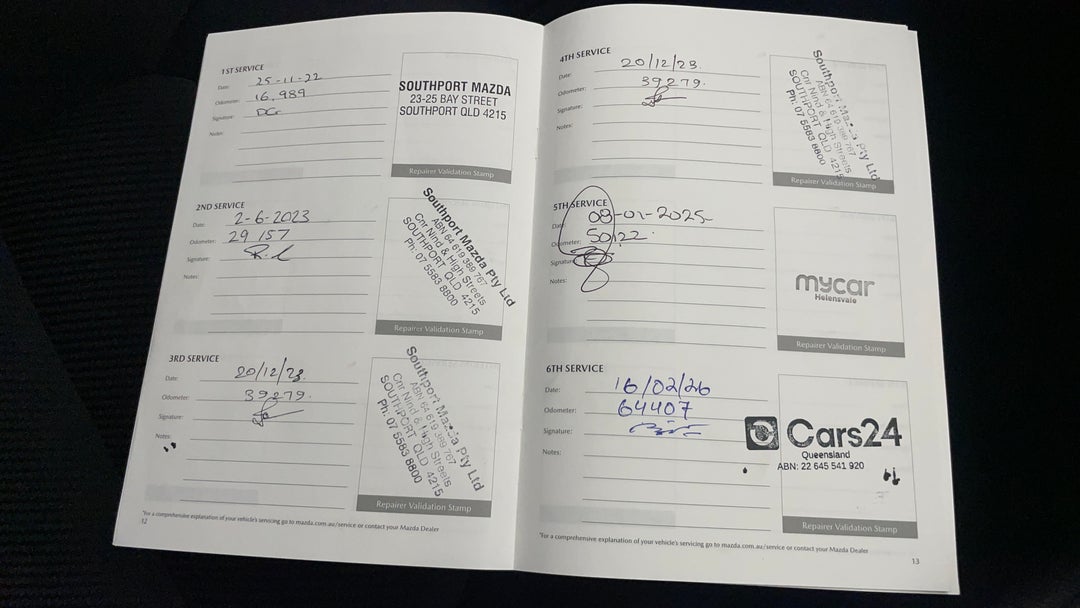 1ST SERVICE
Date: 25-11-22
Odometer: 16,989
Signature: DCr
Notes:
SOUTHPORT MAZDA
23-25 BAY STREET
SOUTHPORT QLD 4215
Repairer Validation Stamp
2ND SERVICE
Date: 2-6-2023
Odometer: 29 157
Signature:
Notes:
Southport Mazda Pty Ltd
ABN 64 619 389 767
Cnr Nind & High Streets
SOUTHPORT QLD 4215
Ph: 07 5583 8800
Repairer Validation Stamp
3RD SERVICE
Date: 20/12/23.
Odometer: 39279.
Signature:
Notes:
Southport Mazda Pty Ltd
ABN 64 619 389 767
Cnr Nind & High Streets
SOUTHPORT QLD 4215
Ph: 07 5583 8800
Repairer Validation Stamp
*For a comprehensive explanation of your vehicle's servicing go to mazda.com.au/service or contact your Mazda Dealer
12
4TH SERVICE
Date: 20/12/23.
Odometer: 39279.
Signature:
Notes:
Southport Mazda Pty Ltd
ABN 64 619 389 767
Cnr Nind & High Streets
SOUTHPORT QLD 4215
Ph: 07 5583 8800
Repairer Validation Stamp
5TH SERVICE
Date: 08-01-2025
Odometer: 50122.
Signature:
Notes:
mycar
Helensvale
Repairer Validation Stamp
6TH SERVICE
Date: 16/02/26
Odometer: 64407
Signature:
Notes:
Cars24
Queensland
ABN: 22 645 541 920
Repairer Validation Stamp
*For a comprehensive explanation of your vehicle's servicing go to mazda.com.au/service or contact your Mazda Dealer
13